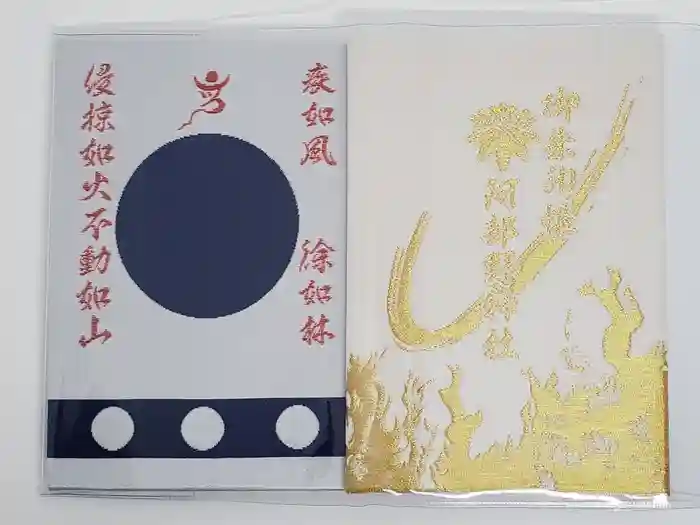 疾如風　徐如林
侵掠如火不動如山
阿部野神社